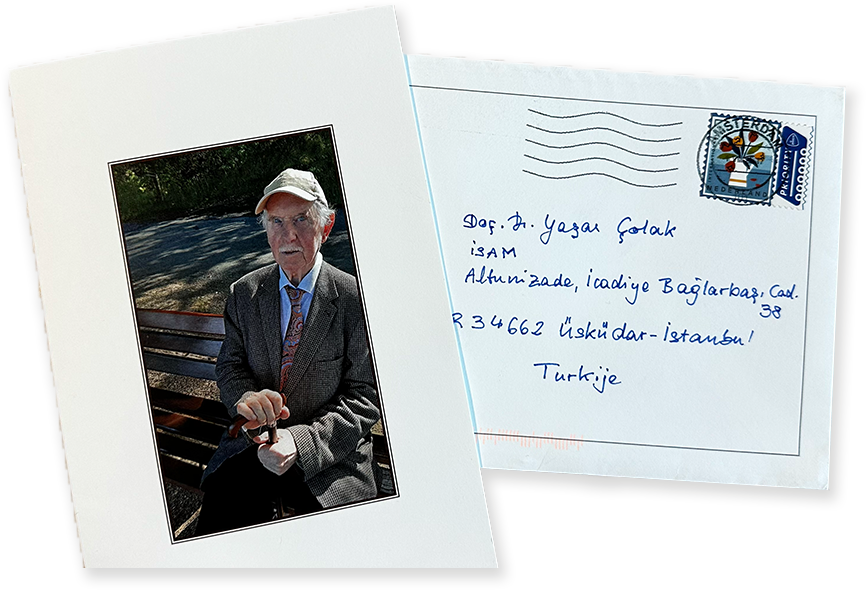 AMSTERDAM
NEDERLAND
PRIORITY
Doç. Dr. Yaşar Çolak
İSAM
Altunizade, İcadiye Bağlarbaşı Cad.
38
R 34662 Üsküdar-İstanbul
Turkije